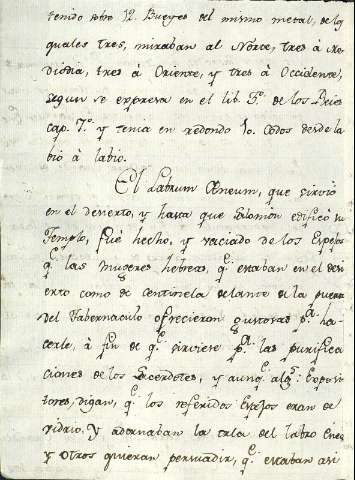 tenido sobre 12. Bueyes del mismo metal, de los
quales tres, miraban al Norte, tres à Me
diodia, tres à Oriente, y tres à Occidente,
segun se expresa en el lib. 3º. de los Reies
cap. 7º. y tenia en redondo 10. Codos desde la
bio à labio.
El Labrum Æneum, que sirviò
en el desierto, y hasta que Salomòn edificò su
Templo, fuè hecho, y vaciado de los Espejos
q.e las mugeres hebreas, q.e estaban en el desi
erto como de Centinela delante de la puerta
del Tabernaculo ofrecieron gustosas p.a ha
cerle, à fin de q.e sirviese p.a las purifica
ciones de los Sacerdotes, y aunq.e alg.s Exposi
tores, digan, q.e los referidos Espejos eran de
vidrio. Y adornaban la orla del labro Eneo
y otros quieran persuadir, q.e estaban asi